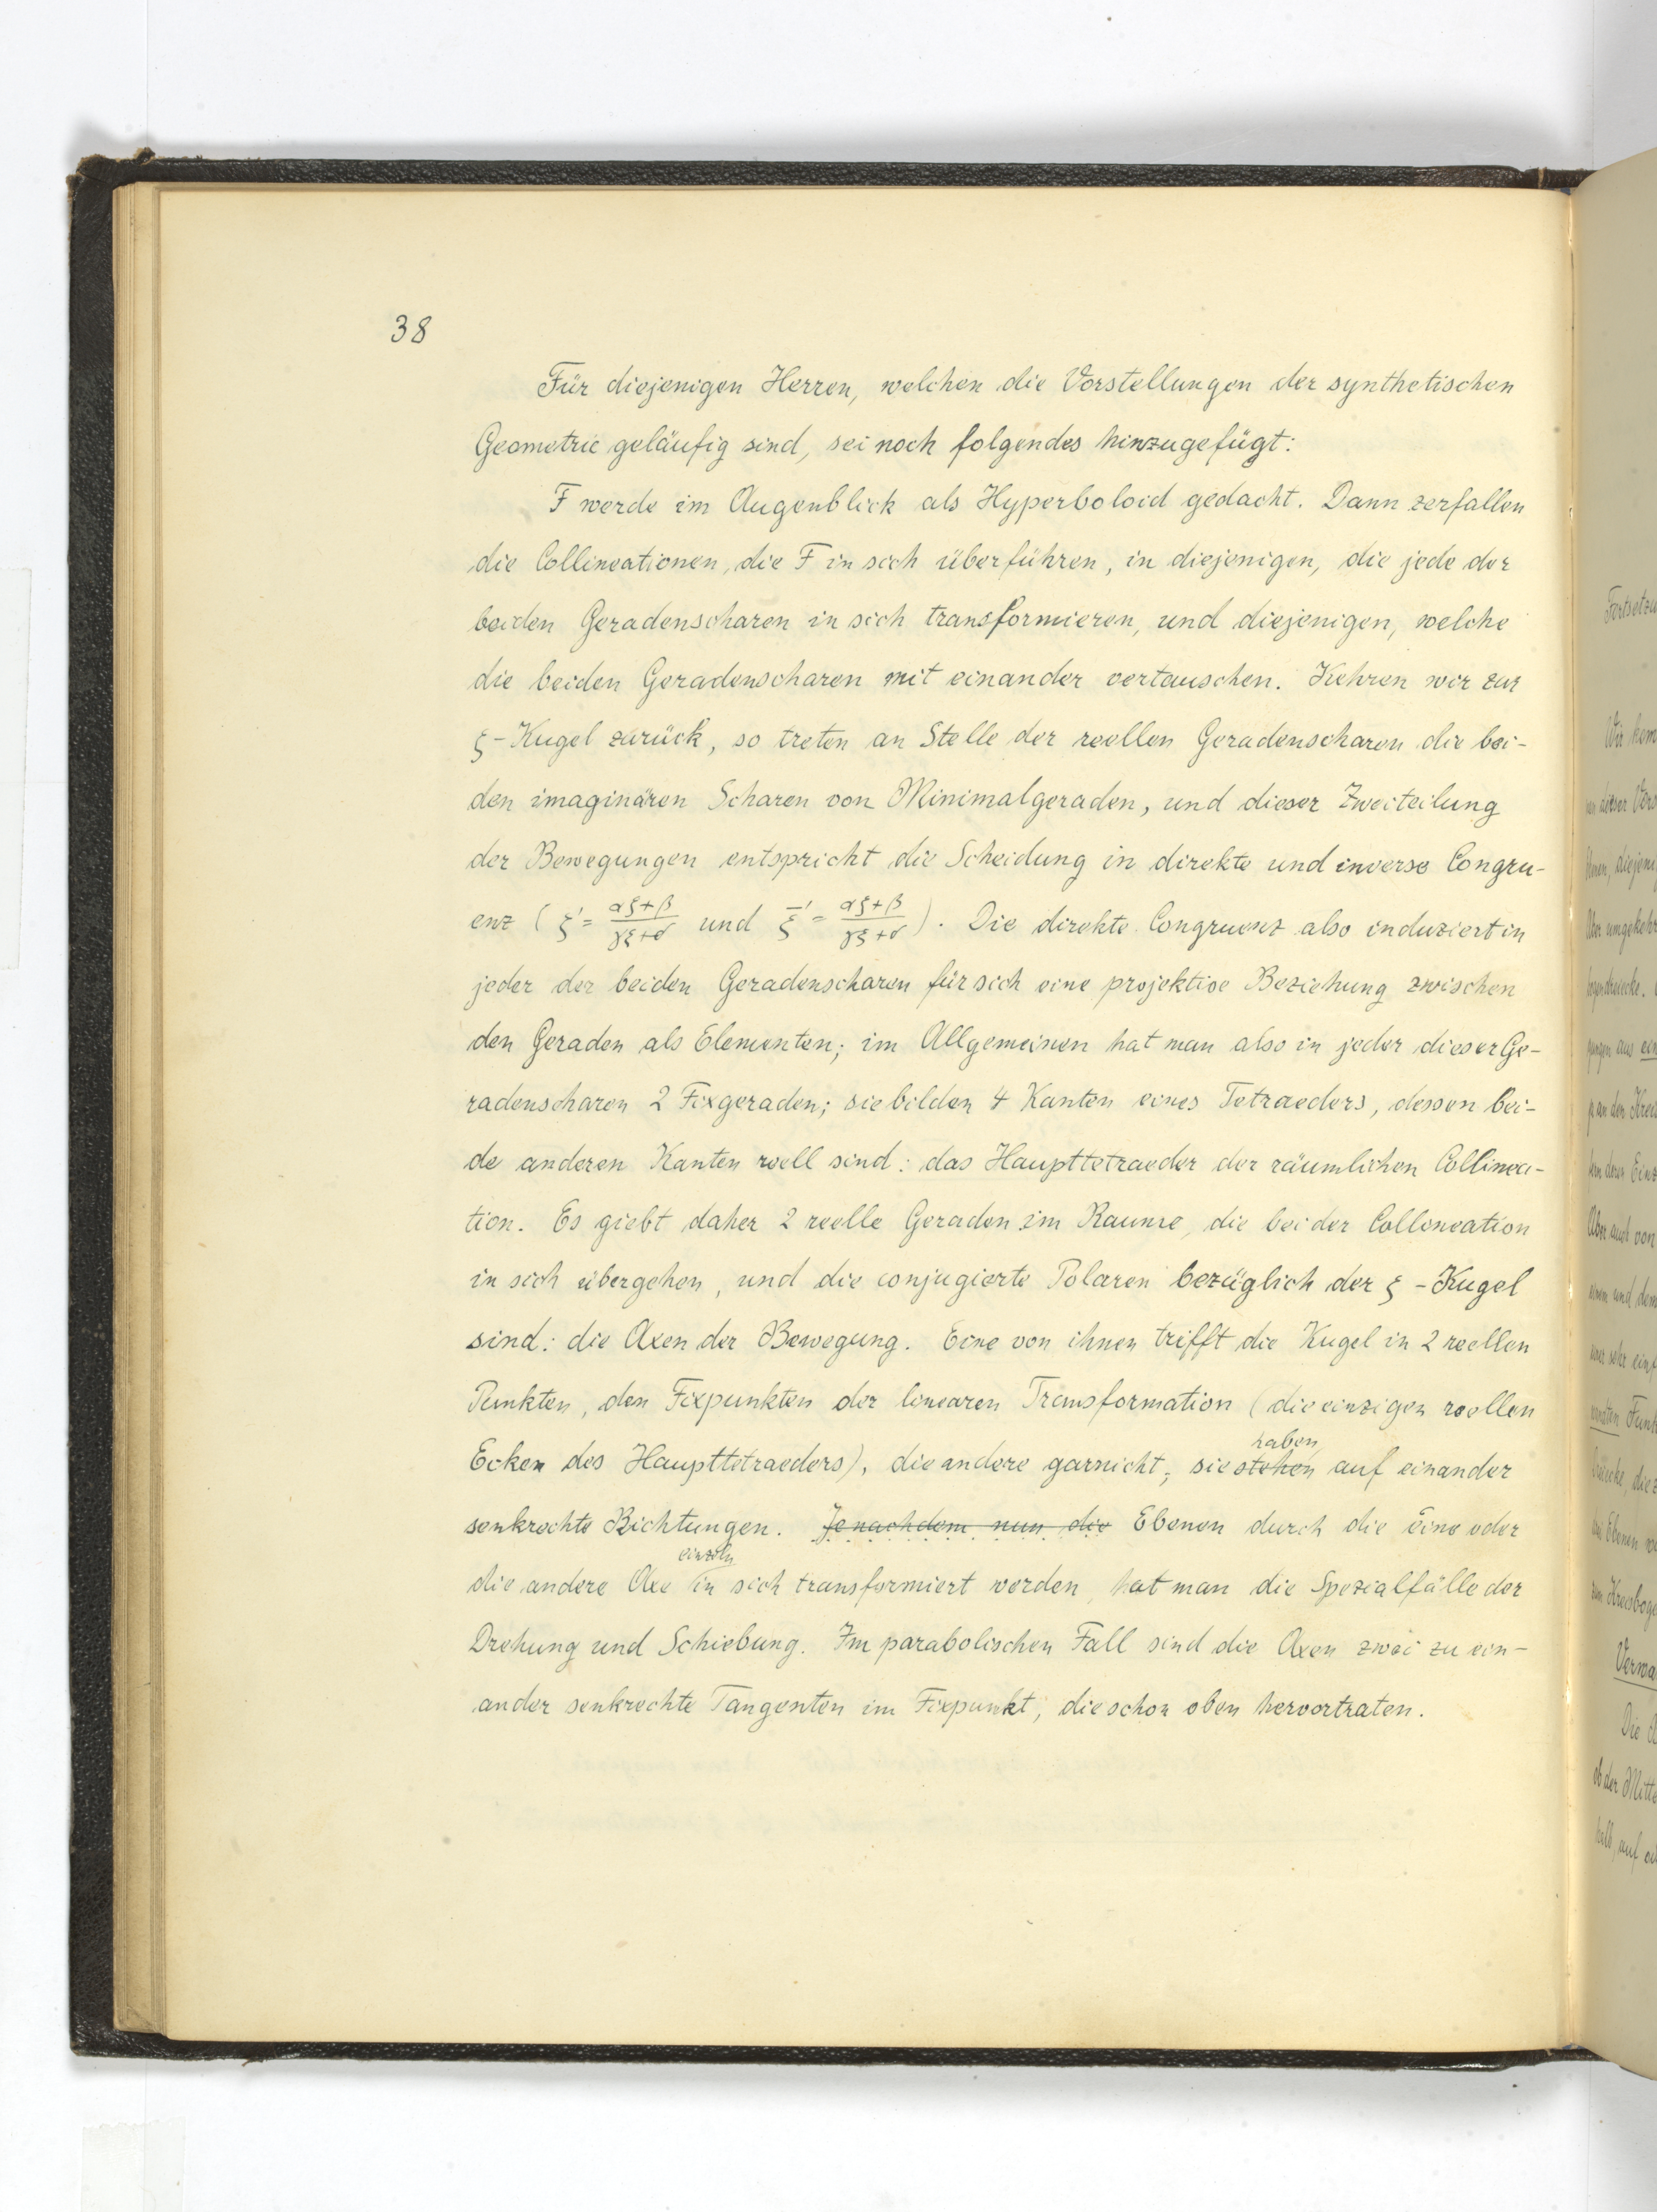 38
Für diejenigen Herren, welchen die Vorstellungen der synthetischen
Geometrie geläufig sind, sei noch folgendes hinzugefügt:
F werde im Augenblick als Hyperboloid gedacht. Dann zerfallen
die Collineationen, die F in sich überführen, in diejenigen, die jede der
beiden Geradenscharen in sich transformieren, und diejenigen, welche
die beiden Geradenscharen mit einander vertauschen. Kehren wir zur
ξ-Kugel zurück, so treten an Stelle der reellen Geradenscharen die bei-
den imaginären Scharen von Minimalgeraden, und dieser Zweiteilung
der Bewegungen entspricht die Scheidung in direkte und inverse Congru-
enz (ξ' = (αξ+β)/(γξ+δ) und ξ̄' = (αξ+β)/(γξ+δ)). Die direkte Congruenz also induziert in
jeder der beiden Geradenscharen für sich eine projektive Beziehung zwischen
den Geraden als Elementen; im Allgemeinen hat man also in jeder dieser Ge-
radenscharen 2 Fixgeraden; sie bilden 4 Kanten eines Tetraeders, dessen bei-
de anderen Kanten reell sind: das Haupttetraeder der räumlichen Collinea-
tion. Es giebt daher 2 reelle Geraden im Raume, die bei der Collineation
in sich übergehen, und die conjugierte Polaren bezüglich der ξ-Kugel
sind: die Axen der Bewegung. Eine von ihnen trifft die Kugel in 2 reellen
Punkten, den Fixpunkten der linearen Transformation (die einzigen reellen
haben
Ecken des Haupttetraeders), die andere garnicht; sie stehen auf einander
senkrechte Richtungen. Jenachdem nun die Ebenen durch die eine oder
einzeln
die andere Axe in sich transformiert werden, hat man die Spezialfälle der
Drehung und Schiebung. Im parabolischen Fall sind die Axen zwei zu ein-
ander senkrechte Tangenten im Fixpunkt, die schon oben hervortraten.